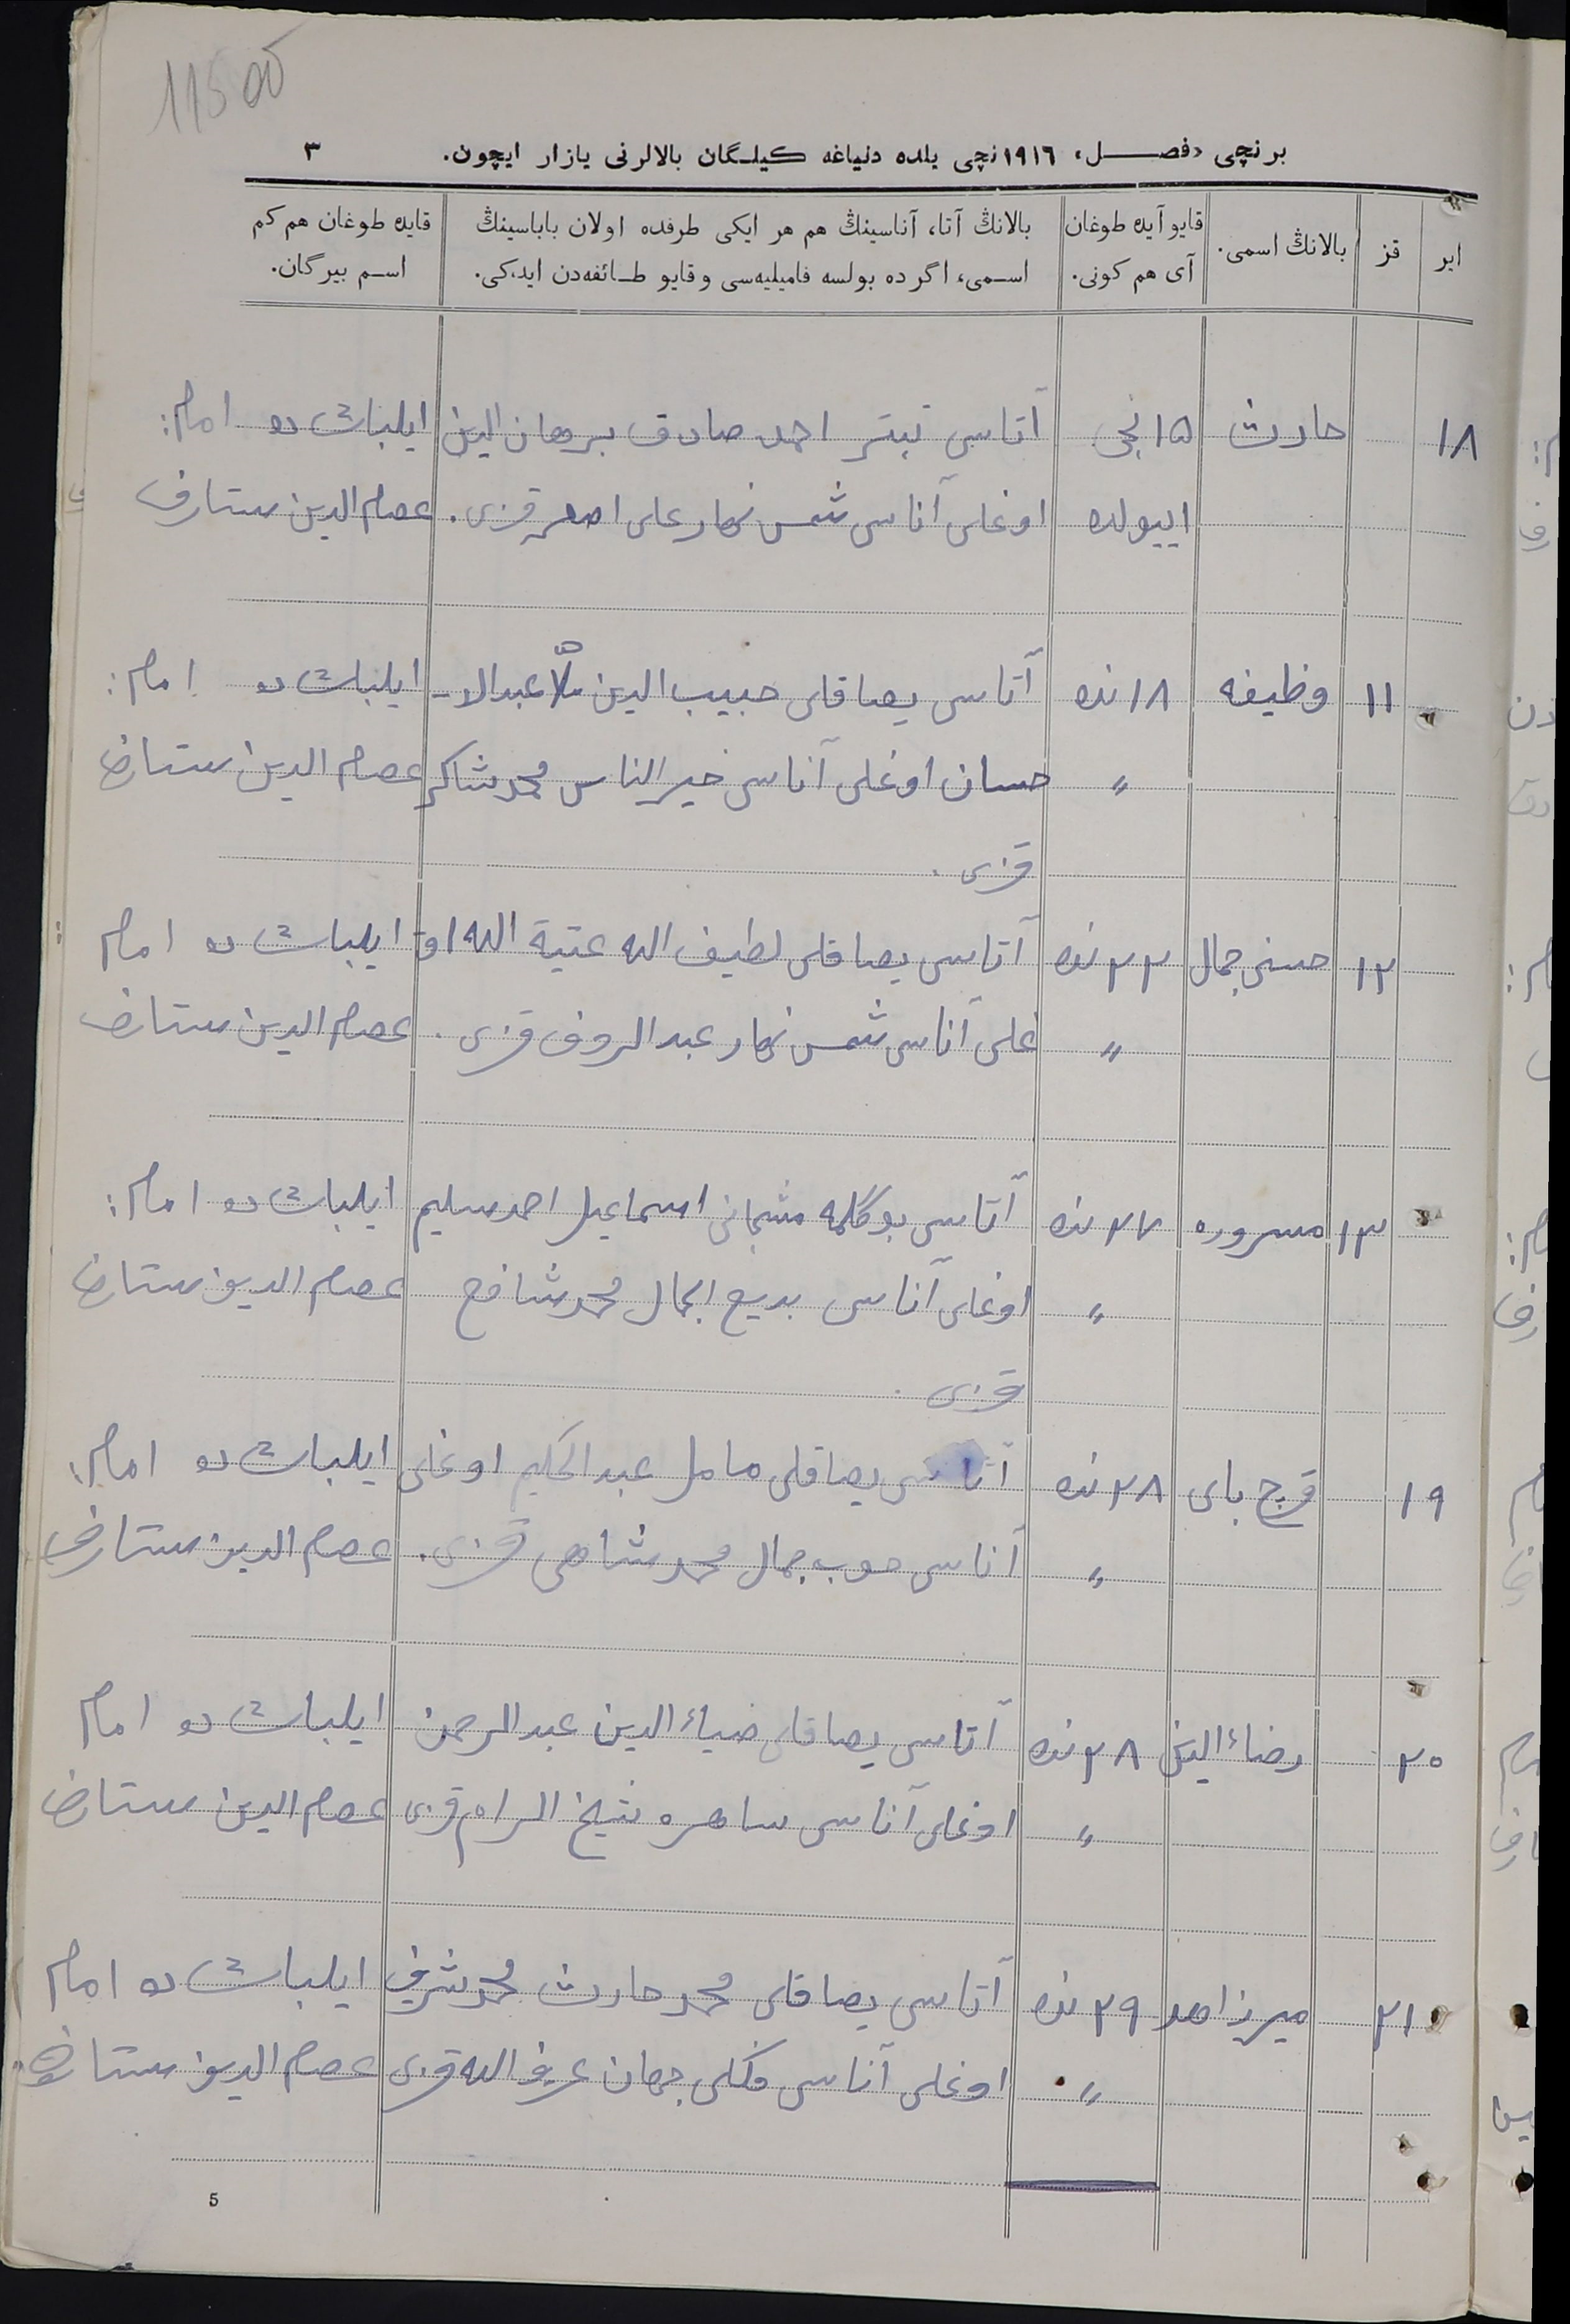 11500
برنچی «فصل» ۱۹۱٦نچی یلده دنیاغه کیلگان بالالرنی یازار ایچون. ۳
ایر
قز
بالانڭ اسمی.
قایو آیده طوغان
آی هم کونی.
بالانڭ آتا، آناسینڭ هم هر ایکی طرفده اولان باباسینڭ
اسمی، اگر ده بولسه فامیلیه‌سی و قایو طائفه‌دن ایدکی.
قایده طوغان هم کم
اسم بیرگان.
۱۸ حارث ۱۵نچی آتاسی احمد صادق برهان الدین ایلباش ده امام:
اییولده اوغلی آناسی شمس نهار علی اصغر قزی. عصام الدین ستارف
۱۱ وظیفه ۱۸نده آتاسی یصاقلی حبیب الدین ملّا عبدالا- ایلباش ده امام:
〃 حسان اوغلی آناسی خیر الناس محمد شاکر عصام الدین ستارف
قزی.
۱۲ حسنی جمال ۲۲نده آتاسی یصاقلی لطیف الله عتیة الله او ایلباش ده امام
〃 غلی آناسی شمس نهار عبد الروف قزی. عصام الدین ستارف
۱۳ مسروره ۲۷نده آتاسی بوگلمه مشچانی اسماعیل احمد سلیم ایلباش ده امام:
〃 اوغلی آناسی بدیع الجمال محمد شافع عصام الدین ستارف
قزی.
۱۹ بای ۲۸نده آتاسی یصاقلی عبد الحکیم اوغلی ایلباش ده امام:
〃 آناسی حوب جمال محمد شاهی قزی. عصام الدین ستارف
۲۰ رضاء الدین ۲۸نده آتاسی یصاقلی ضیاء الدین عبد الرحمن ایلباش ده امام
〃 اوغلی آناسی ساهره قزی عصام الدین ستارف
۲۱ میرزاهد ۲۹نده آتاسی یصاقلی محمد حارث محمد شریف ایلباش ده امام
〃 اوغلی آناسی جهان قزی عصام الدین ستارف
5